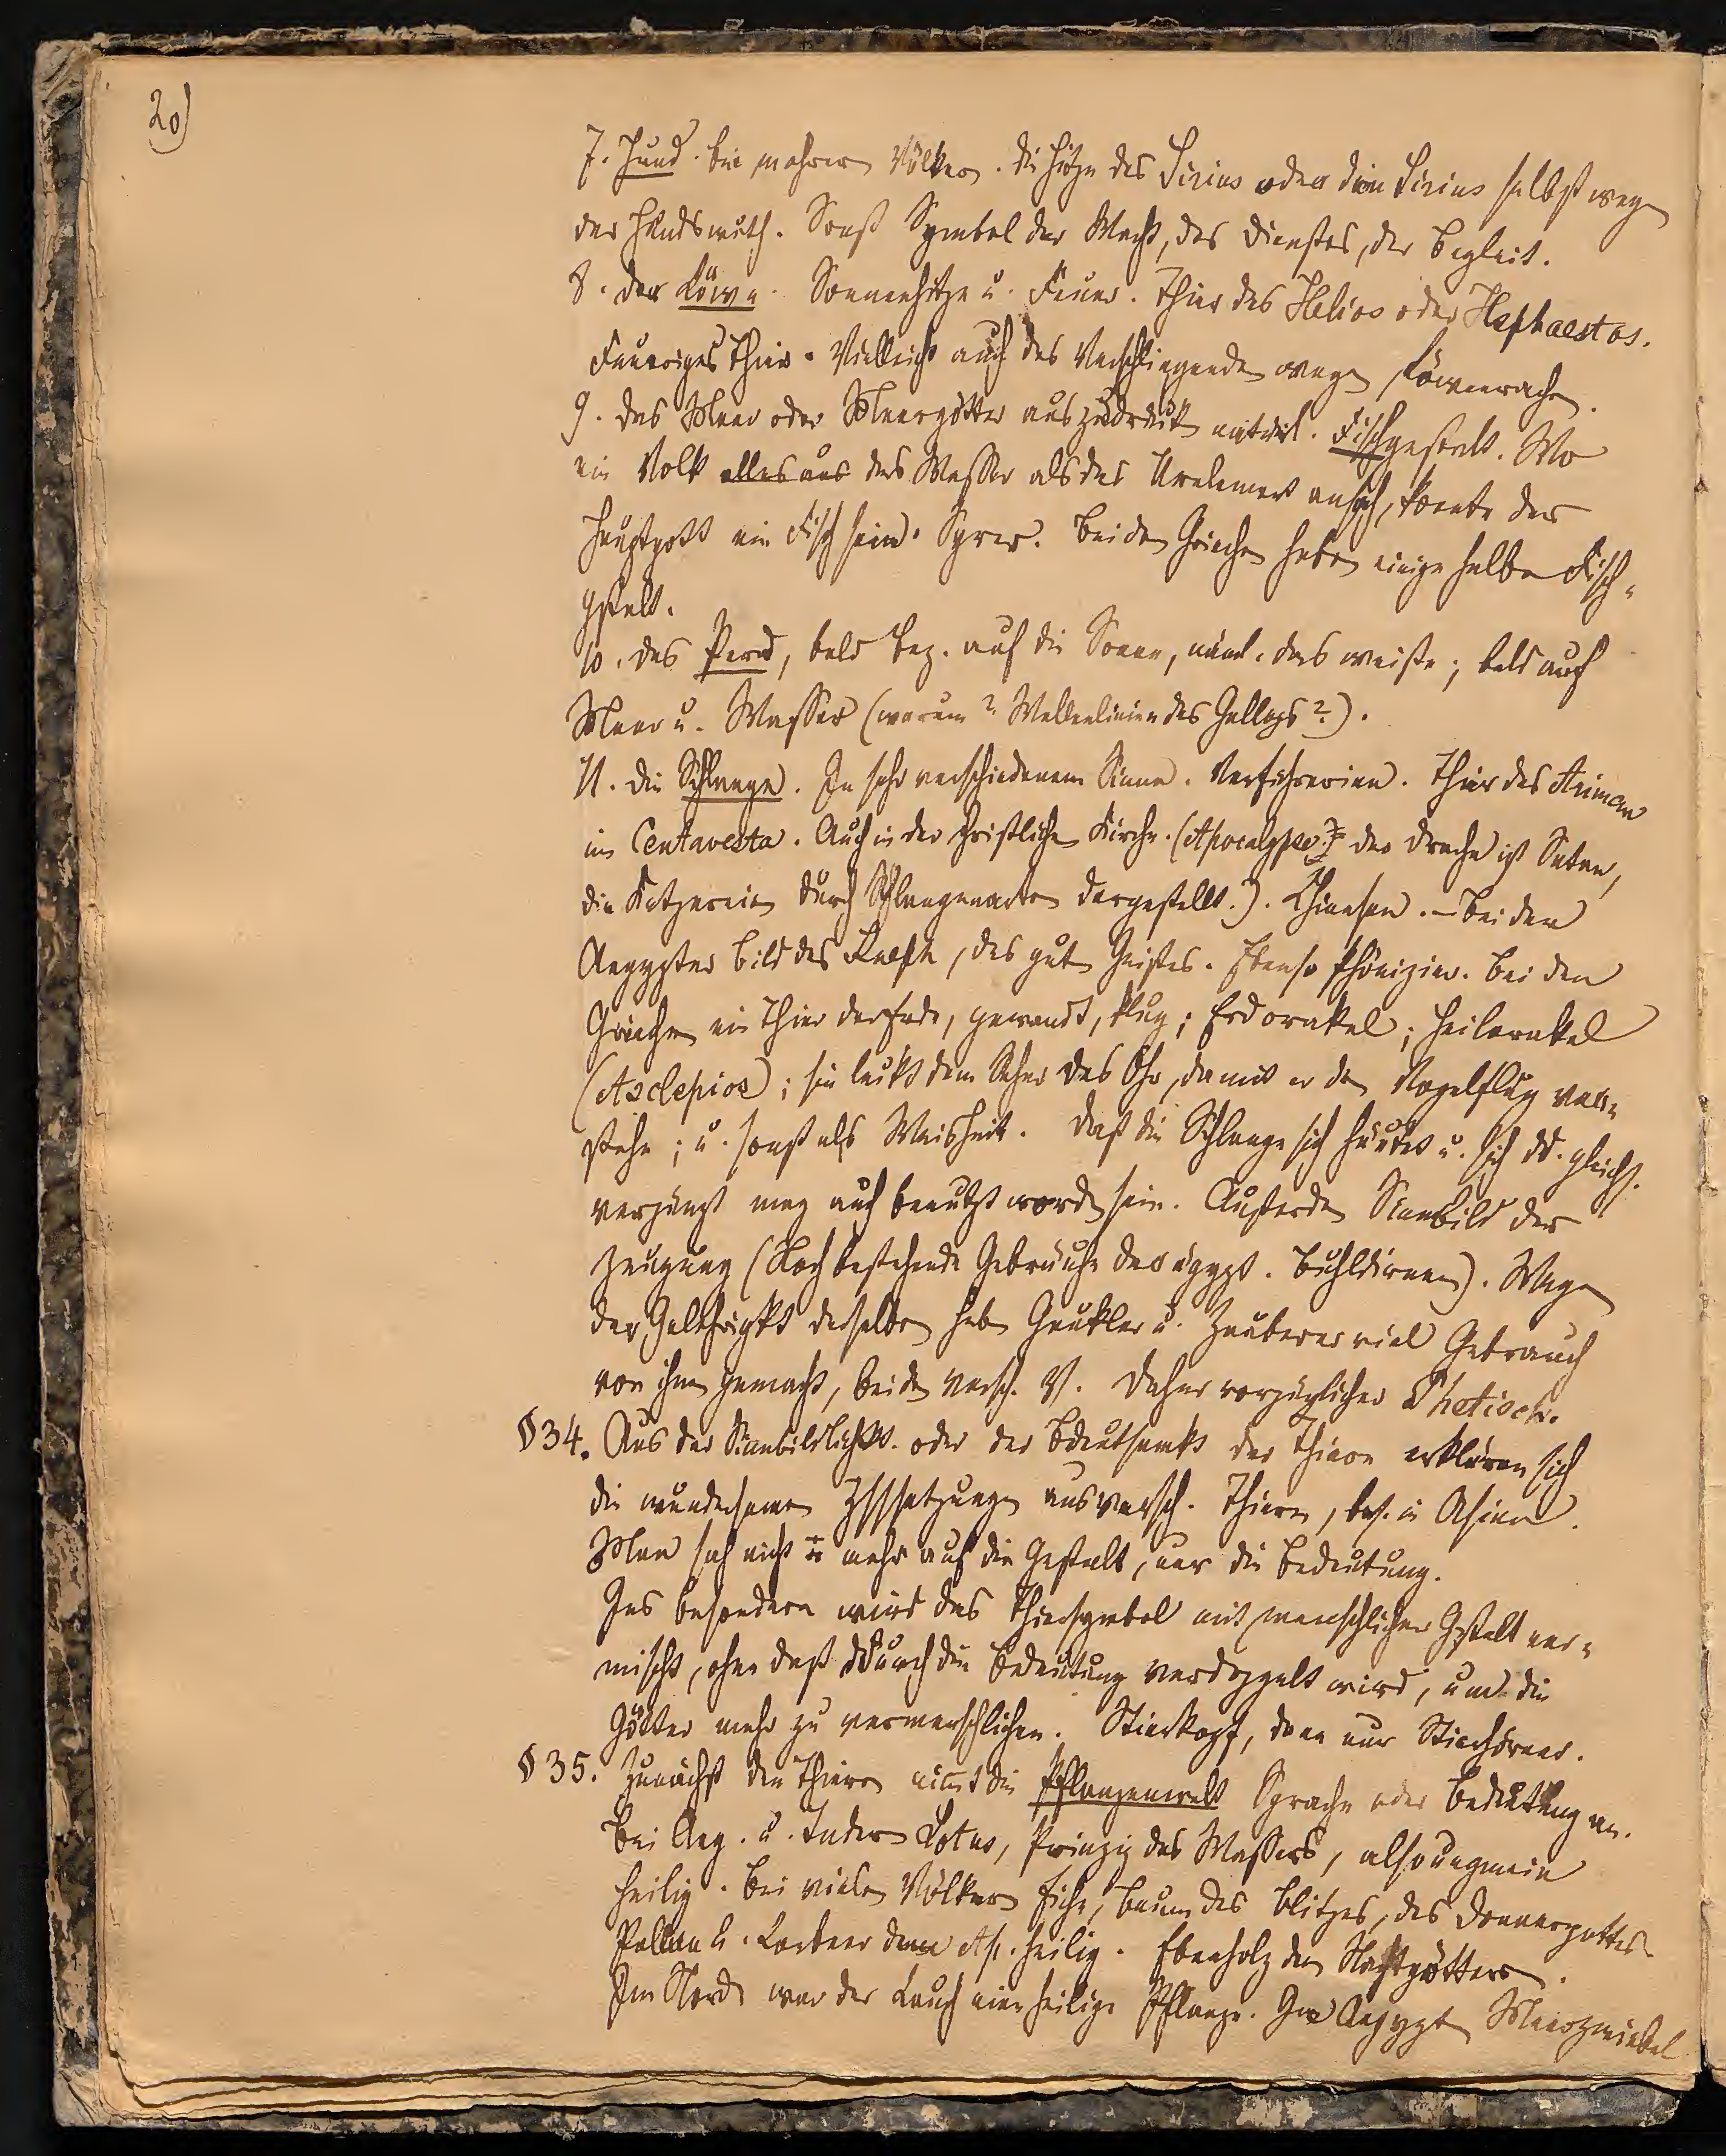 20)
7. Hund. bei mehrern Völkern. die Hitze des Sirius oder den Sirius selbst wegen
der Hundswuth. Sonst Symbol der Wacht, des Dienstes, der Begleit.
8. der Löwe. Sonnenhitze u. Feuer. Thier des Helios oder Hephaestos.
Feueriges Thier. Vielleicht auch des Verschlingenden wegen Löwenrachen.
9. das Meer oder Meergötter auszudrücken natürl. Fischgestalt. Wo
ein Volk alles aus das Wasser als das Urelement ansah, konnte der
Hauptgott ein Fisch sein. Syrer. Bei den Griechen haben einige halbe Fisch-
gstalt.
10. das Pferd, bald bez. auf die Sonne, näml. das weiße; bald auf
Meer u. Wasser (warum? Wellenlinien des Gallops?).
11. die Schlange. In sehr verschiedenem Sinne. Verführerinn. Thier des Ariman
im Centavesta. Auch in der christlichen Kirche. (Apocalypse der Drache ist Satan,
die Ketzereien durch Schlangenarten dargestellt.). Chinesen. – Bei den
Aegypter Bild des Kneph, des guten Geistes. Ebenso Phönizier. Bei den
Griechen ein Thier der Erde, gewandt, klug; Erdorakel; Heilorakel
(Asclepios); sie leckt dem Seher das Ohr, damit er den Vogelflug ver-
stehe; u. sonst als Weisheit. Daß die Schlange sich häutet u. sich dd. gleichs.
verjüngt mag auch benutzt worden sein. Außerdem Sinnbild der
Zeugung (Noch bestehende Gebräuche der ägypt. Buhldirnen). Wegen
der Gelehrigkt derselben haben Gaukler u. Zauberer viel Gebrauch
von ihnen gemacht, bei den versch. V. Daher vorzüglicher Phetisch.
§ 34. Aus der Sinnbildlichkt. oder der Bdeutsamkt der Thiere erklären sich
die wundersamen Zsssetzungen aus versch. Thieren, bes. in Asien.
Man sah nicht mehr auf die Gestalt, nur die Bedeutung.
Ins besondere wird das Thiersymbol mit menschlicher Gstalt ver-
mischt, ohne daß ddurch die Bedeutung verdoppelt wird, um die
Götter mehr zu vermenschlichen. Stierkopf, dann nur Stierhörner.
§ 35. Zunächst den Thieren nimt die Pflanzenwelt Sprache oder Bedeutung an.
Bei Aeg. u. Indern Lotus, Prinzip des Wassers, also ungemein
heilig. Bei vielen Völkern Eiche, Baum des Blitzes, des Donnergottes.
Palme u. Lorbeer dem Ap. heilig. Ebenholz den Nachtgöttern.
Im Norden war der Lauch eine heilige Pflanze. In Aegypten Meerzwiebel